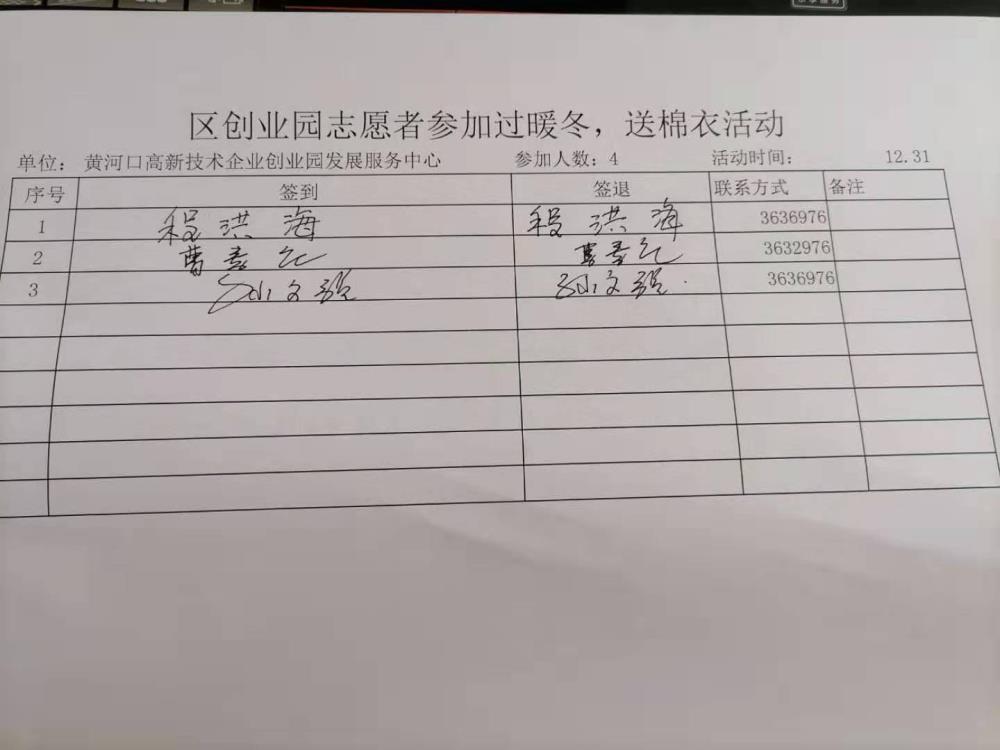 区创业园志愿者参加过暖冬，送棉衣活动
单位： 黄河口高新技术企业创业园发展服务中心 参加人数：4 活动时间： 12.31
序号 签到 签退 联系方式 备注
1 程洪海 程洪海 3636976
2 曹 曹 3632976
3 孙文 孙文 3636976